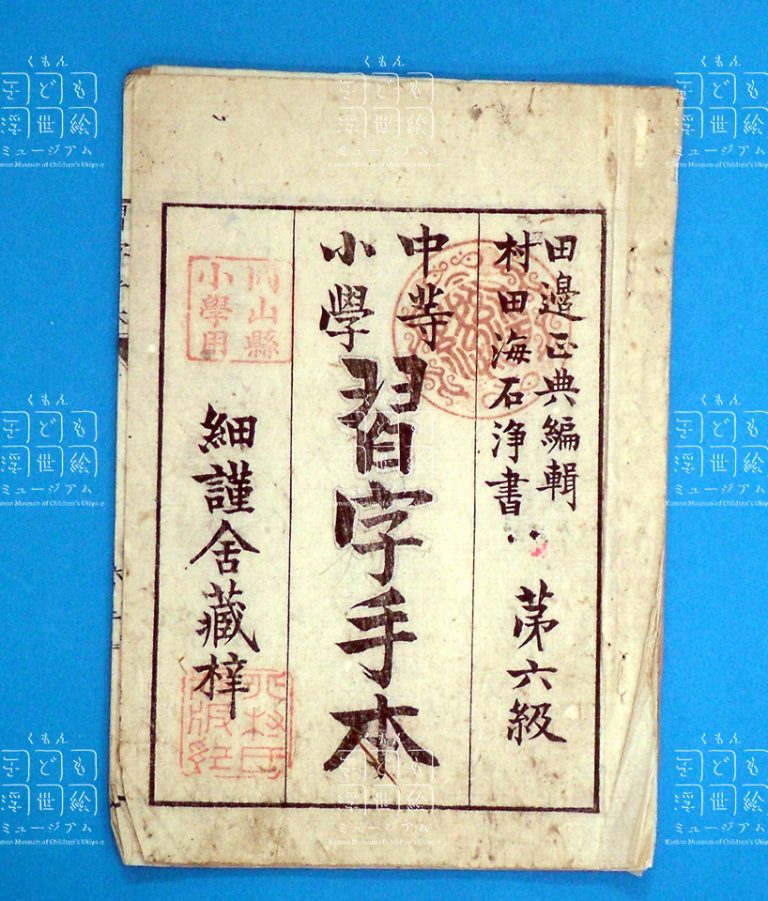 田邉正典編輯
村田海石浄書
苐六級
中等
小學
習字手本
岡山縣
小學用
細謹舍藏梓
くもん
子ども
浮世絵
ミュージアム
Kumon Museum of Children's Ukiyo-e